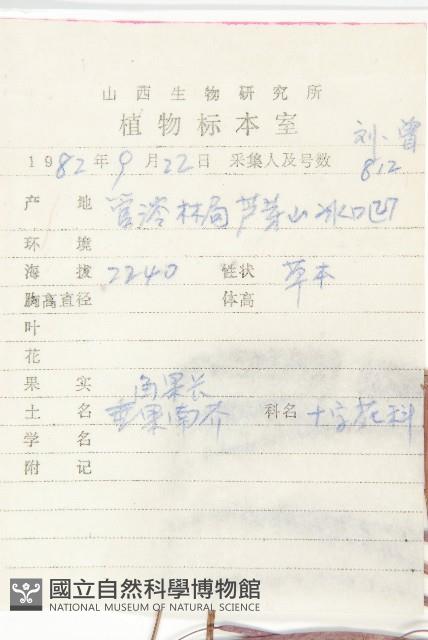 山西生物研究所
植物标本室
刘、曾
1982年9月22日 采集人及号数 812
产地 管涔林局芦芽山冰口凹
环境
海拔 2240 性状 草本
胸高直径 体高
叶
花
果实 角果长
土名 垂果南芥 科名 十字花科
学名
附记
國立自然科學博物館
NATIONAL MUSEUM OF NATURAL SCIENCE